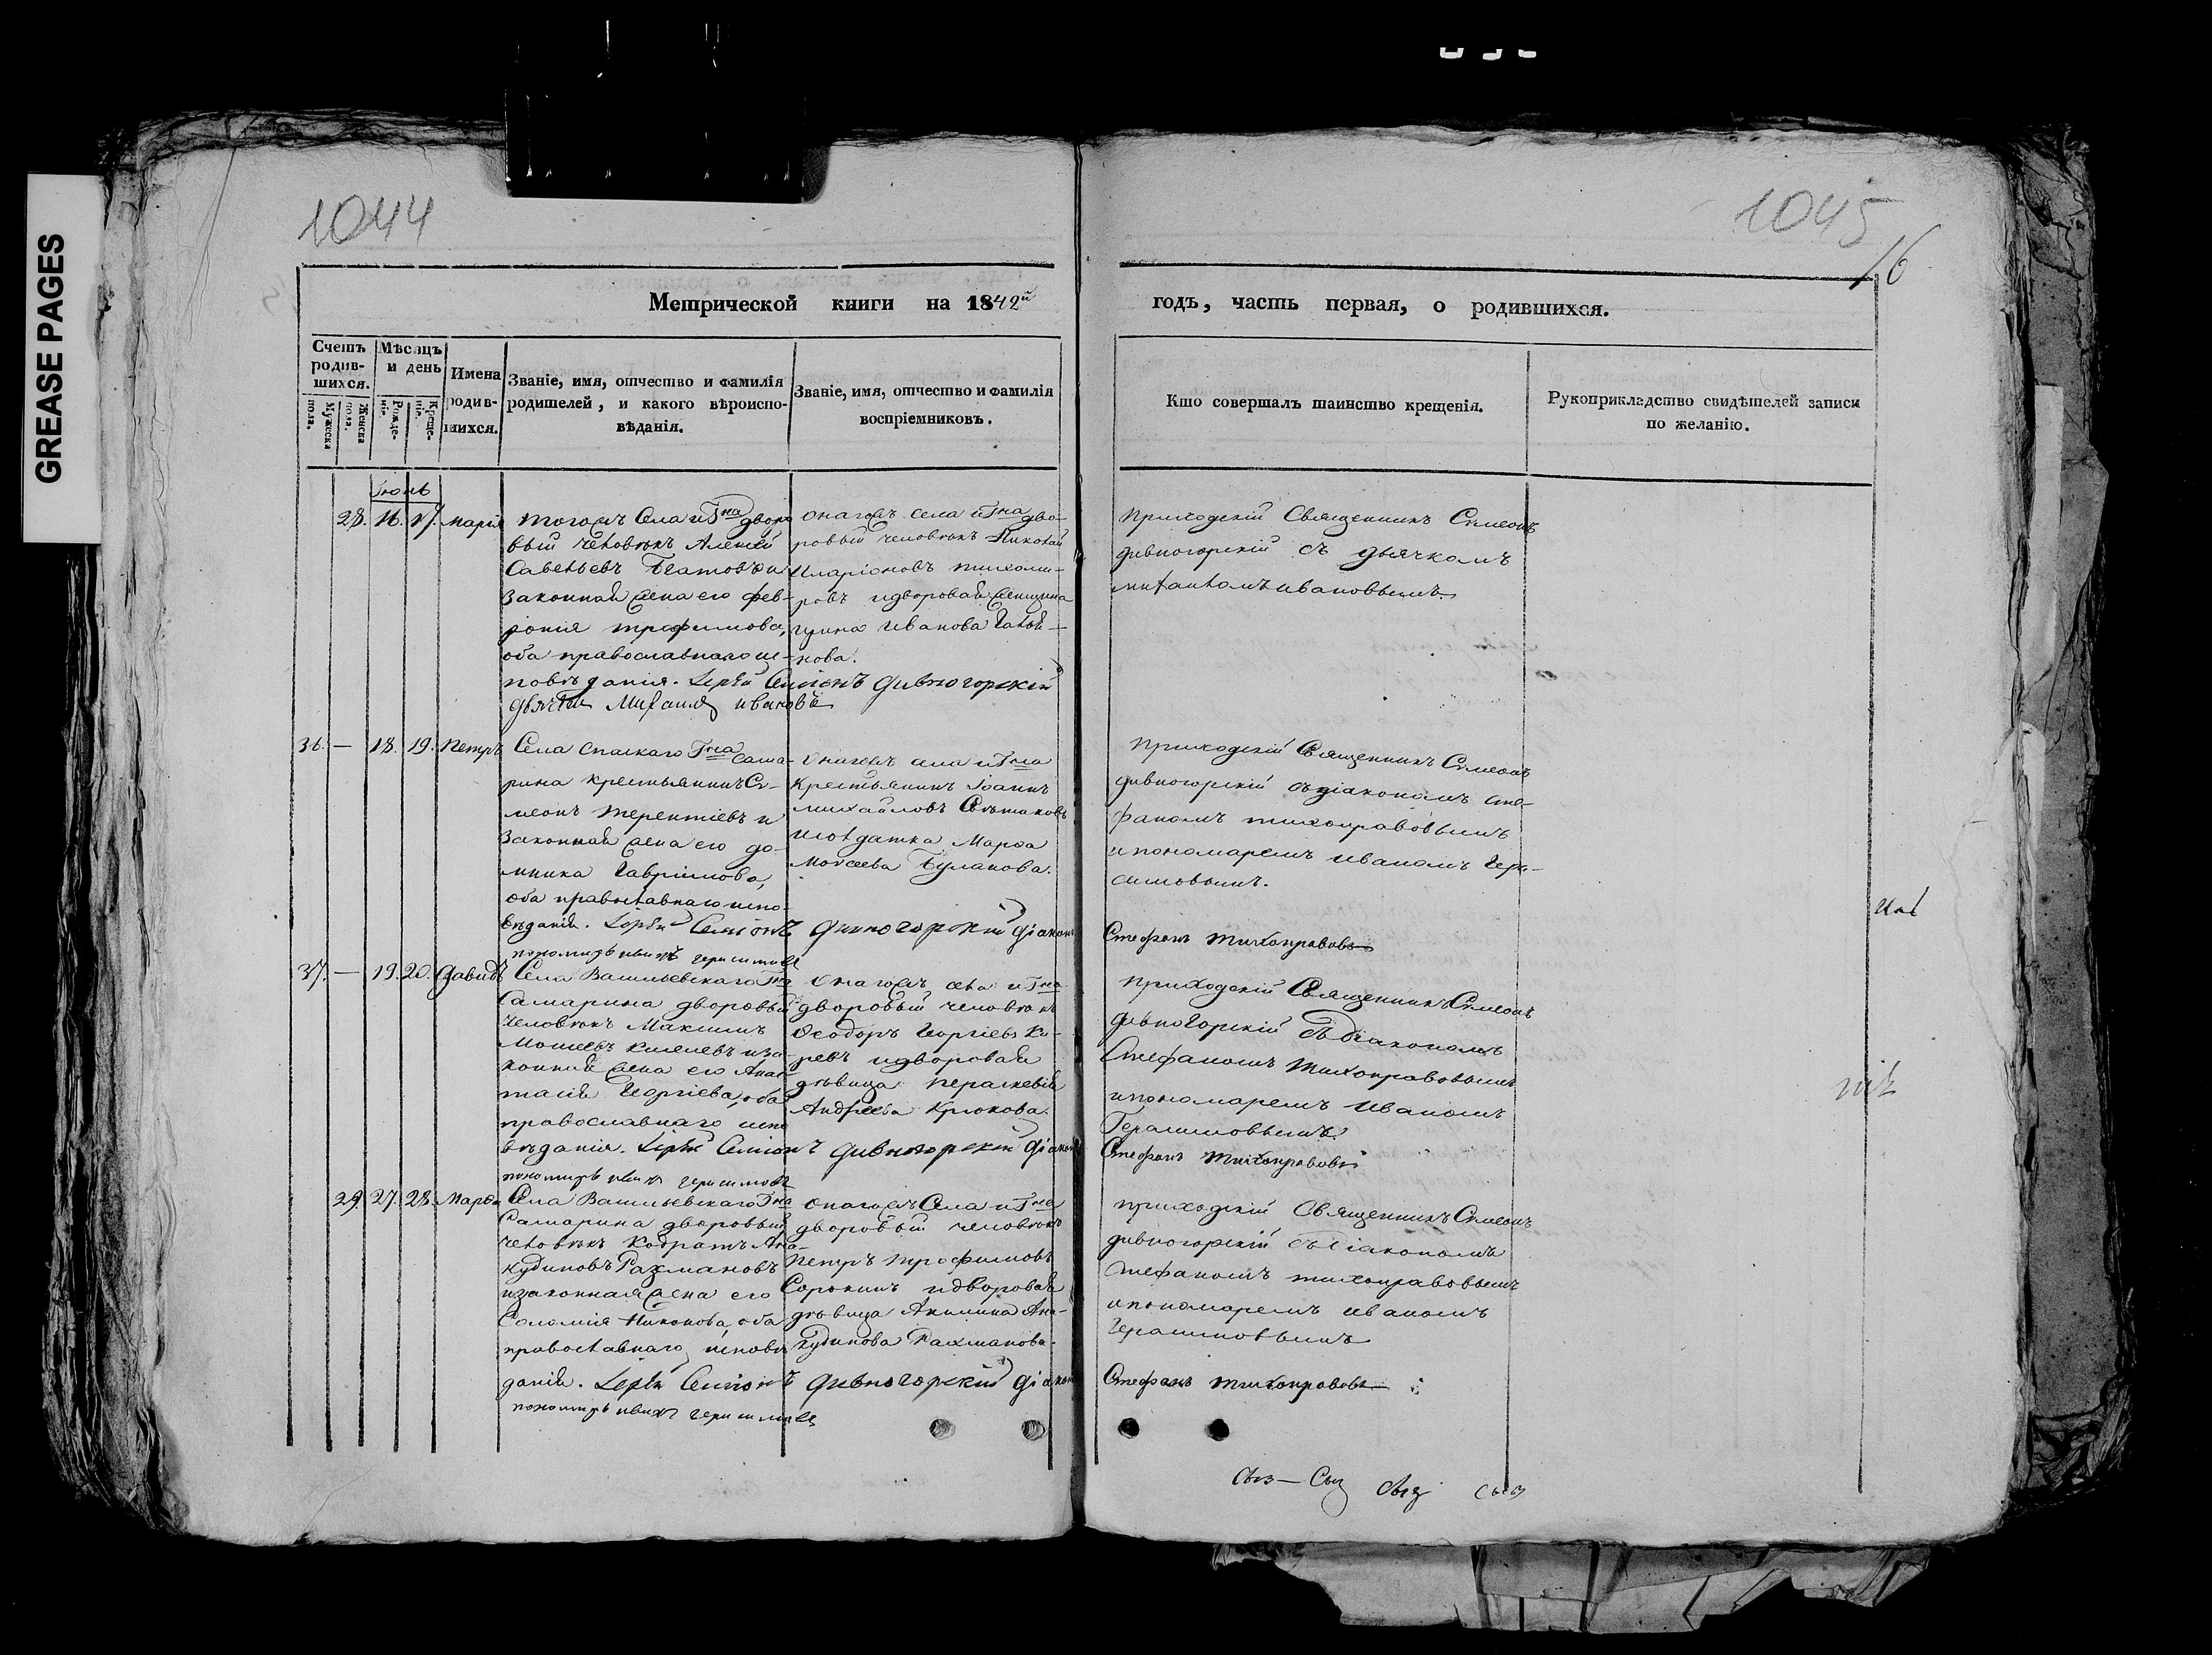 GREASE PAGES
1044
1045
16
Метрической книги на 1842й
годъ, часть первая, о родившихся.
Счетъ родив-шихся.
Мужеска пола.
Женска пола.
Мѣсяцъ и день
Рожде-нія.
Креще-нія.
Имена родив-шихся.
Званіе, имя, отчество и фамилія родителей, и какого вѣроиспо-вѣданія.
Званіе, имя, отчество и фамилія воспріемниковъ.
Кто совершалъ таинство крещенія.
Рукоприкладство свидѣтелей записи по желанію.
Іюнь
28. 16. 17. Марія
тогожъ Села и Гна дворо
вый человѣкъ Алексей
Савельевъ
законная жена его Фев-
ронія Трофимова,
оба православнаго ис-
повѣданія. Іерей Симіонъ Дивногорскій
Михаилъ Ивановъ
онагожъ села и Гна дво-
ровый человѣкъ Николай
Иларіоновъ Тихоми-
ровъ и дворовая женщина
Ирина Иванова
нова.
приходскій Священникъ Симеонъ
Дивногорскій съ дьячкомъ
Михаиломъ Ивановымъ
36. — 18. 19. Петръ
Села Спаскаго Гна Сама-
рина крестьянинъ Си-
меонъ Терентіевъ и
законная жена его До-
мника Гавріилова,
оба православнаго испо-
вѣданія. Іерей Симіонъ Дивногорскій Діаконъ
пономарь Иванъ Герасимовъ
онагожъ села и Гна
крестьянинъ Іоаннъ
Михайловъ
и солдатка Марѳа
Моѵсеева Буланова.
приходскій Священникъ Симеонъ
Дивногорскій съ діакономъ Сте-
фаномъ Тихонравовымъ
и пономаремъ Иваномъ Гера-
симовымъ.
Стефанъ Тихонравовъ
37. — 19. 20. Давидъ
Села Васильевскаго Гна
Самарина дворовый
человѣкъ Максимъ
Моисеевъ Киселевъ и за-
конная жена его Анас-
тасія Георгіева, оба
православнаго испо
вѣданія. Іерей Симіонъ Дивногорскій Діаконъ
пономарь Иванъ Герасимовъ
онагожъ села и Гна
дворовый человѣкъ
Ѳеодоръ Георгіевъ Ки-
ревъ и дворовая
дѣвица Параскевія
Андреева Крюкова.
приходскій Священникъ Симеонъ
Дивногорскій съ Діакономъ
Стефаномъ Тихонравовымъ
и пономаремъ Иваномъ
Герасимовымъ.
Стефанъ Тихонравовъ
29. 27. 28. Марѳа
Села Васильевскаго Гна
Самарина дворовый
человѣкъ Кодратъ Ана-
кудиновъ Рахмановъ
и законная жена его
Соломія Никонова, оба
православнаго исповѣ
данія. Іерей Симіонъ Дивногорскій Діаконъ
пономарь Иванъ Герасимовъ
онагожъ Села и Гна
дворовый человѣкъ
Петръ Трофимовъ
Сорокинъ и дворовая
дѣвица Акилина Ана-
кудинова Рахманова.
приходскій Священникъ Симеонъ
Дивногорскій съ Діакономъ
Стефаномъ Тихонравовымъ
и пономаремъ Иваномъ
Герасимовымъ
Стефанъ Тихонравовъ